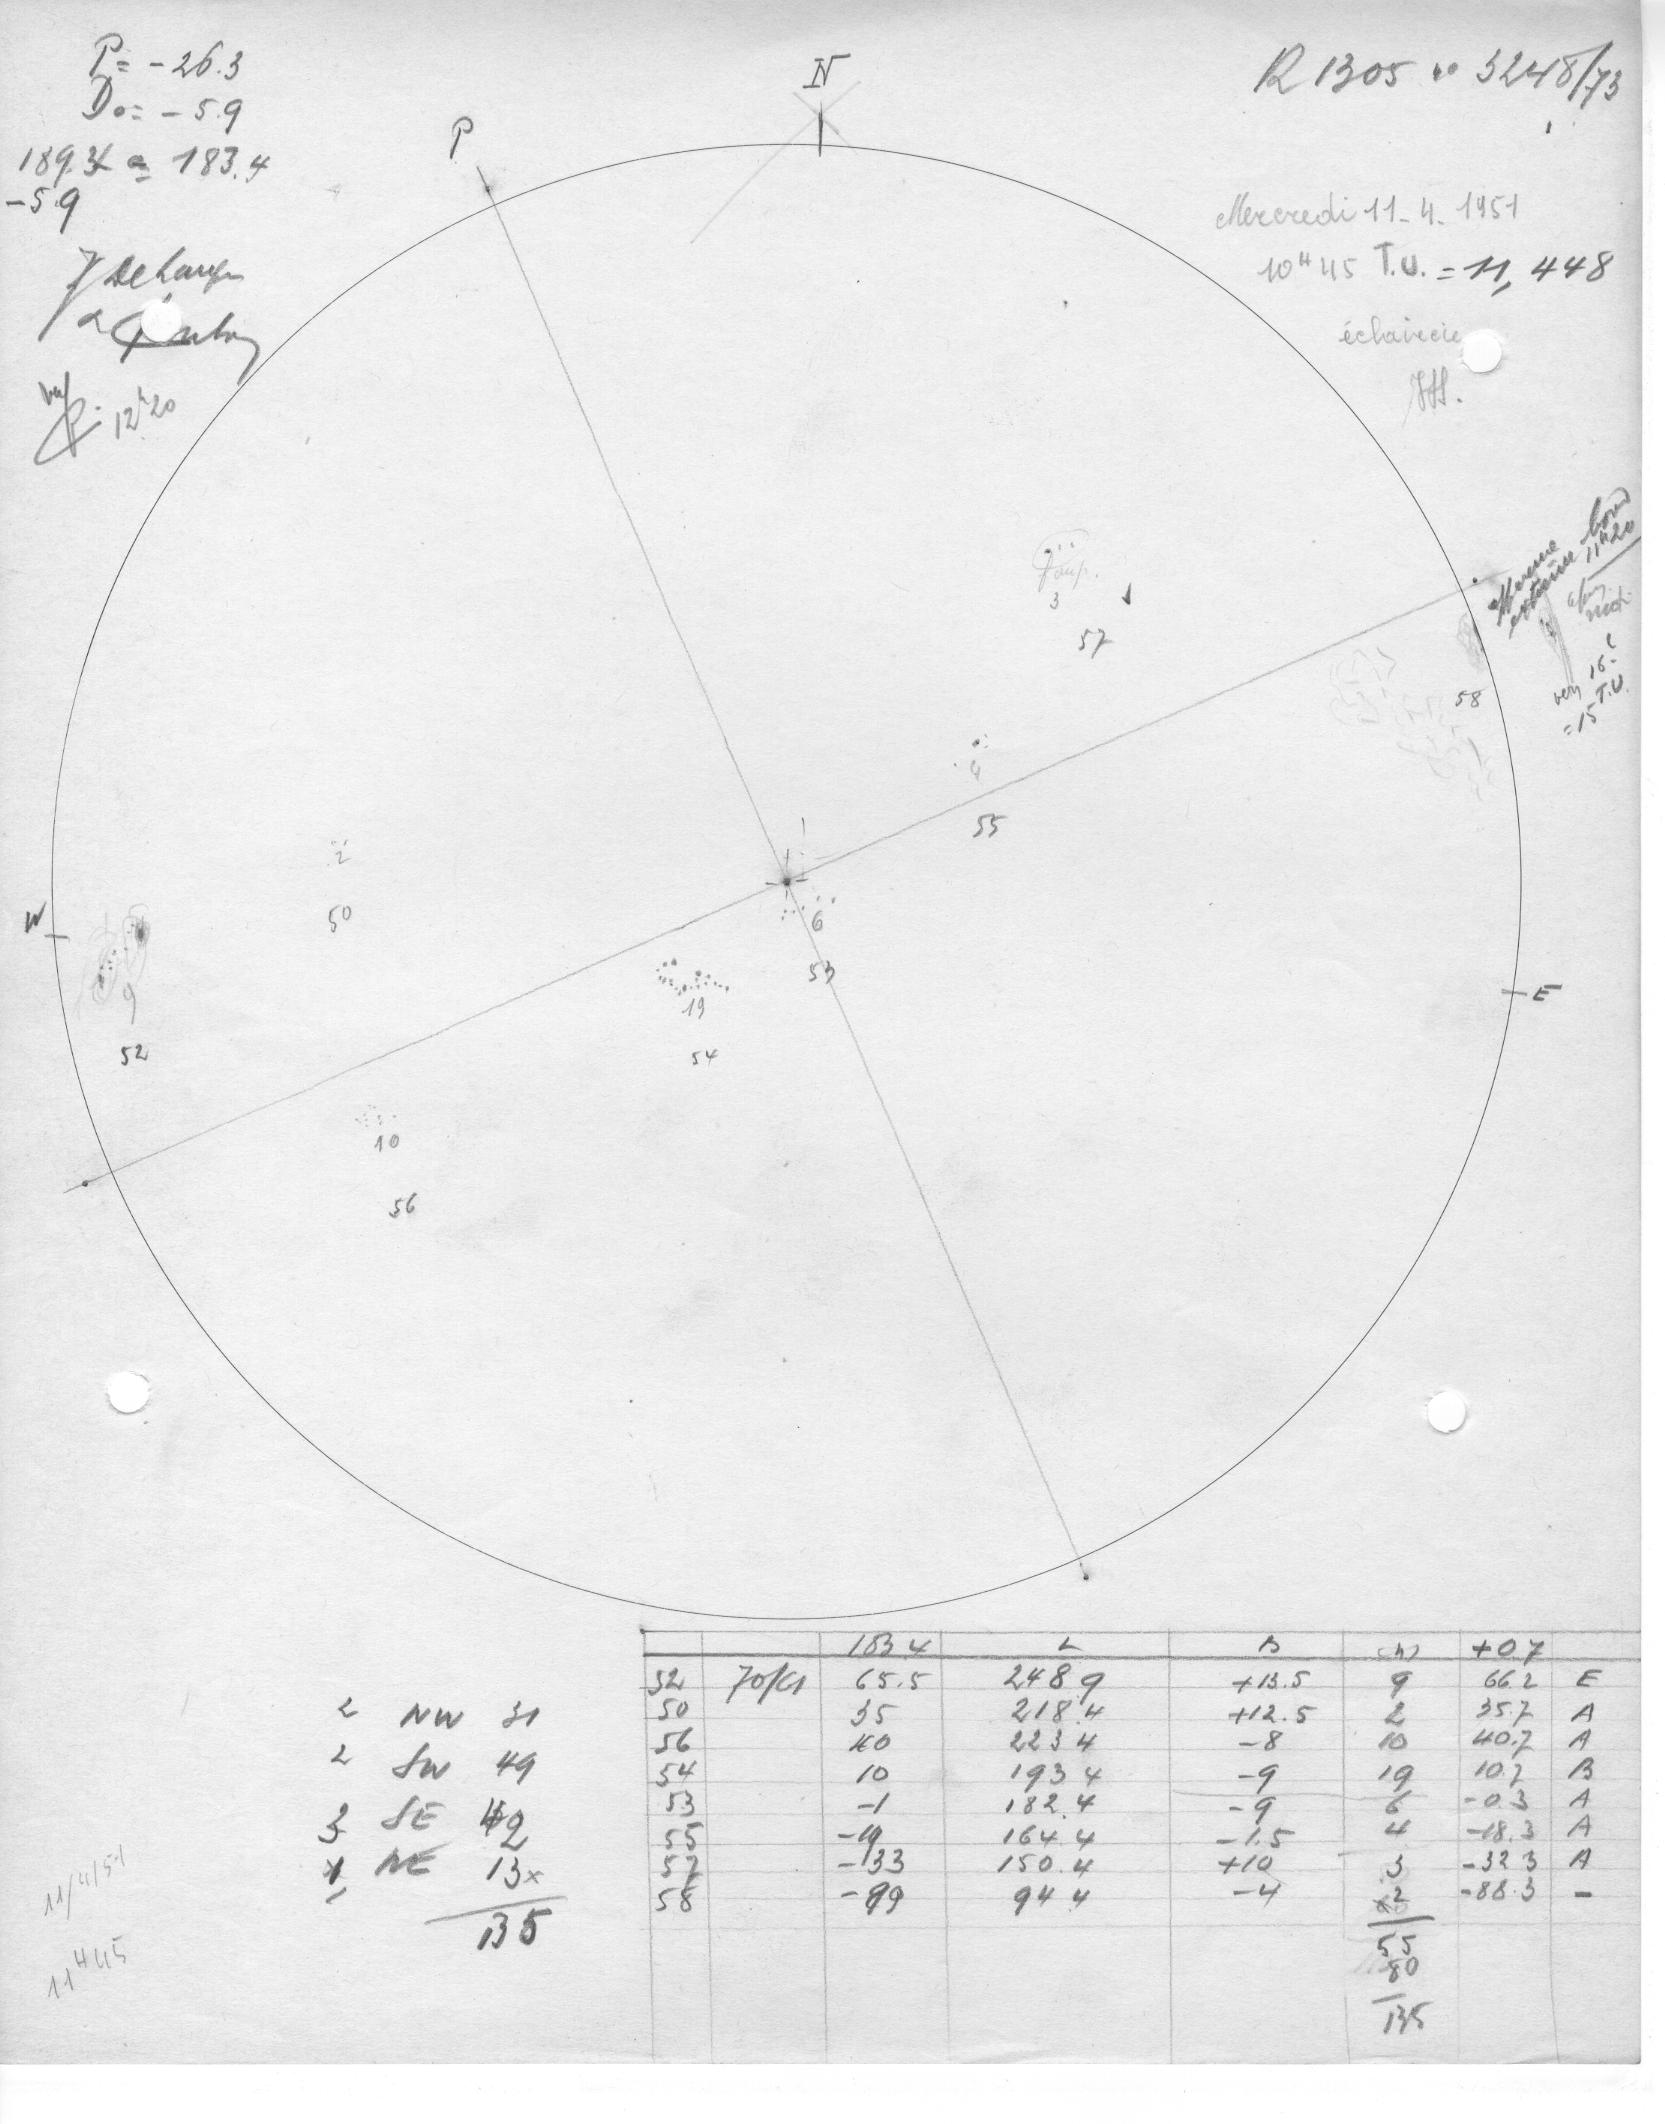 P = -26.3
D₀ = -5.9
189.3
= 183.4
-5.9
12h20
N
P
R 1305 n° 3248/73
Mercredi 11-4-1951
10H45 T.U. = 11,448
éclaircie
extrême bord
11H20
16h
T.U.
= 15
3
57
58
4
55
2
50
W
9
52
6
53
19
54
E
10
56
183.4 L B +0.7
52 65.5 248 9 +13.5 9 66.2 E
50 35 218.4 +12.5 2 35.7 A
56 40 223 4 -8 10 40.7 A
54 10 193 4 -9 19 10.7 B
53 -1 182.4 -9 6 -0.3 A
55 -19 164 4 -1.5 4 -18.3 A
57 -33 150.4 +10 3 -32 3 A
58 -89 94 4 -4 2 -88.3 -
55
80
135
2 NW 31
2 SW 49
3 SE 42
1 NE 13x
135
11/4/51
11H45